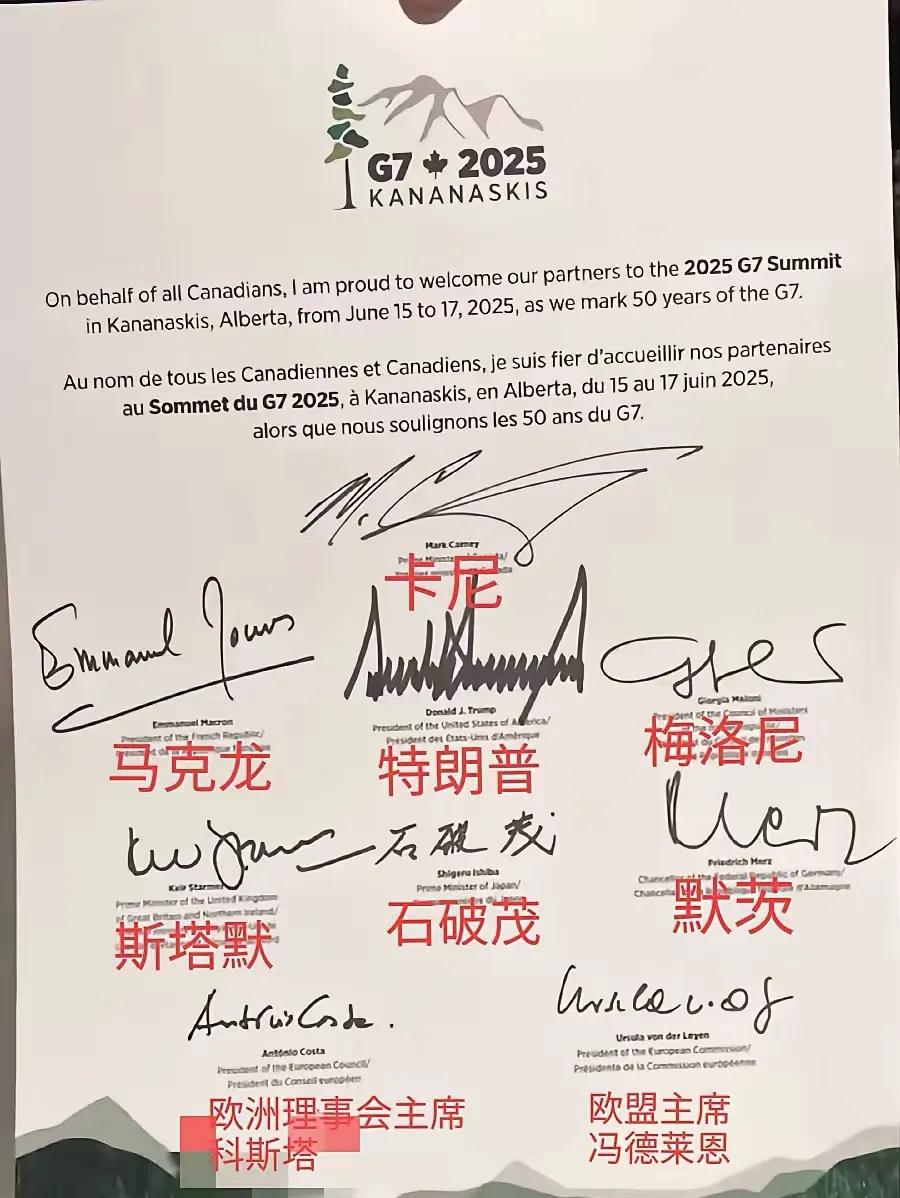 G7 2025
KANANASKIS
On behalf of all Canadians, I am proud to welcome our partners to the 2025 G7 Summit
in Kananaskis, Alberta, from June 15 to 17, 2025, as we mark 50 years of the G7.
Au nom de tous les Canadiennes et Canadiens, je suis fier d'accueillir nos partenaires
au Sommet du G7 2025, à Kananaskis, en Alberta, du 15 au 17 juin 2025,
alors que nous soulignons les 50 ans du G7.
M. C
Mark Carney
卡尼
Emmanuel
Emmanuel Macron
President of the French Republic/
马克龙
Donald J. Trump
President of the United States of America/
Président des États-Unis d'Amérique
特朗普
Giorgia Meloni
President of the Council of Ministers
梅洛尼
Keir Starmer
Prime Minister of the United Kingdom
of Great Britain and Northern Ireland/
斯塔默
石破茂
Shigeru Ishiba
Prime Minister of Japan/
石破茂
Merz
Friedrich Merz
Chancellor of the Federal Republic of Germany/
默茨
António Costa.
António Costa
President of the European Council/
Président du Conseil européen
欧洲理事会主席
科斯塔
Ursula
Ursula von der Leyen
President of the European Commission/
Présidente de la Commission européenne
欧盟主席
冯德莱恩